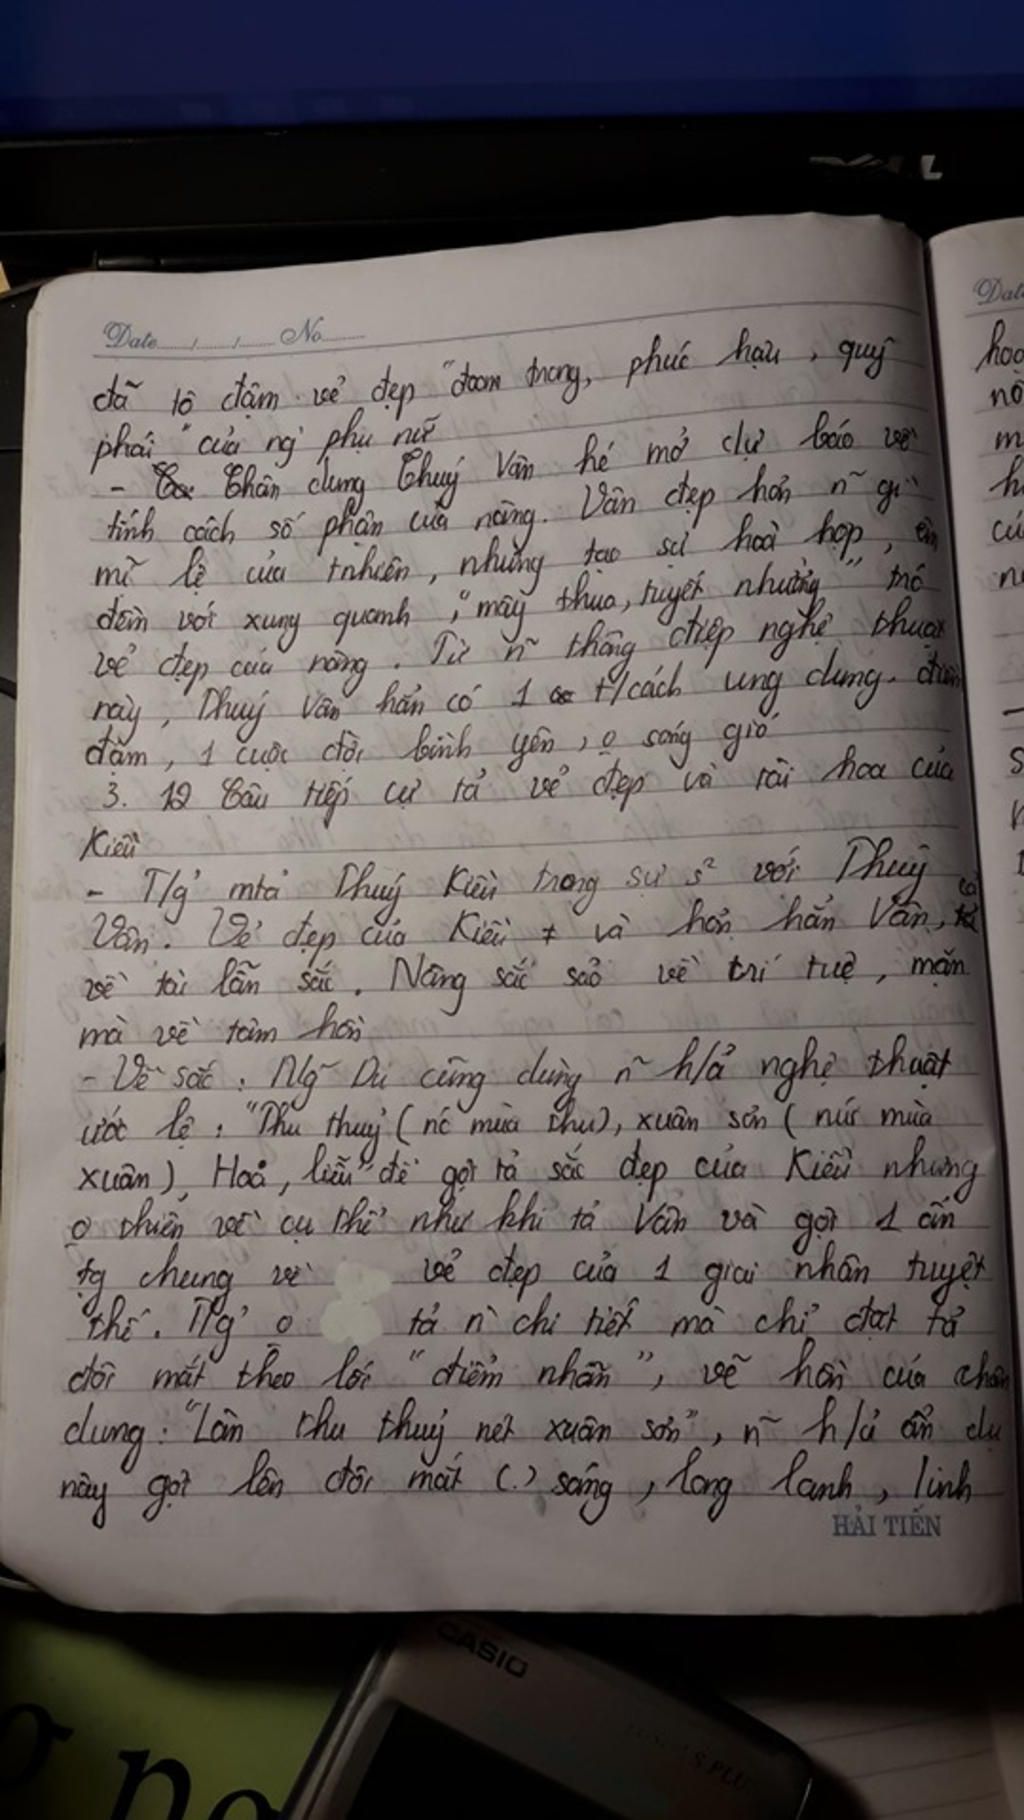 Date...../...../..... No.........
đã tô đậm vẻ đẹp "đoan trang, phúc hậu, quý
phái" của ng' phụ nữ
- Chân dung Thuý Vân hé mở dự báo về
tính cách số phận của nàng. Vân đẹp hơn n~ gì
mĩ lệ của tnhiên, nhưng tạo sự hoà hợp, êm
đềm với xung quanh, "mây thua, tuyết nhường" trc
vẻ đẹp của nàng. Từ n~ thông điệp nghệ thuật
này, Thuý Vân hẳn có 1 t/cách ung dung, điềm
đạm, 1 cuộc đời bình yên, o sóng gió
3. 12 Câu tiếp cự tả vẻ đẹp và tài hoa của
Kiều
- T/g' mtả Thuý Kiều trong sự s² với Thuý
Vân. Vẻ đẹp của Kiều ≠ và hơn hẳn Vân, cả
về tài lẫn sắc. Nàng sắc sảo về trí tuệ, mặn
mà về tâm hồn
- Về sắc: Ng~ Du cũng dùng n~ h/ả nghệ thuật
ước lệ: "Thu thuỷ (nc mùa thu), xuân sơn (núi mùa
xuân), Hoa, liễu" để gợi tả sắc đẹp của Kiều nhưng
o thiên về cụ thể như khi tả Vân và gợi 1 ấn
tg chung về vẻ đẹp của 1 giai nhân tuyệt
thế. T/g' o tả n` chi tiết mà chỉ đặt tả
đôi mắt theo lối "điểm nhãn", vẽ hồn của chân
dung: "Làn thu thuỷ nét xuân sơn", n~ h/ả ẩn dụ
này gợi lên đôi mắt (.) sáng, long lanh, linh
HẢI TIẾN
Date
hoa
nô
m
h
cú
n
CASIO